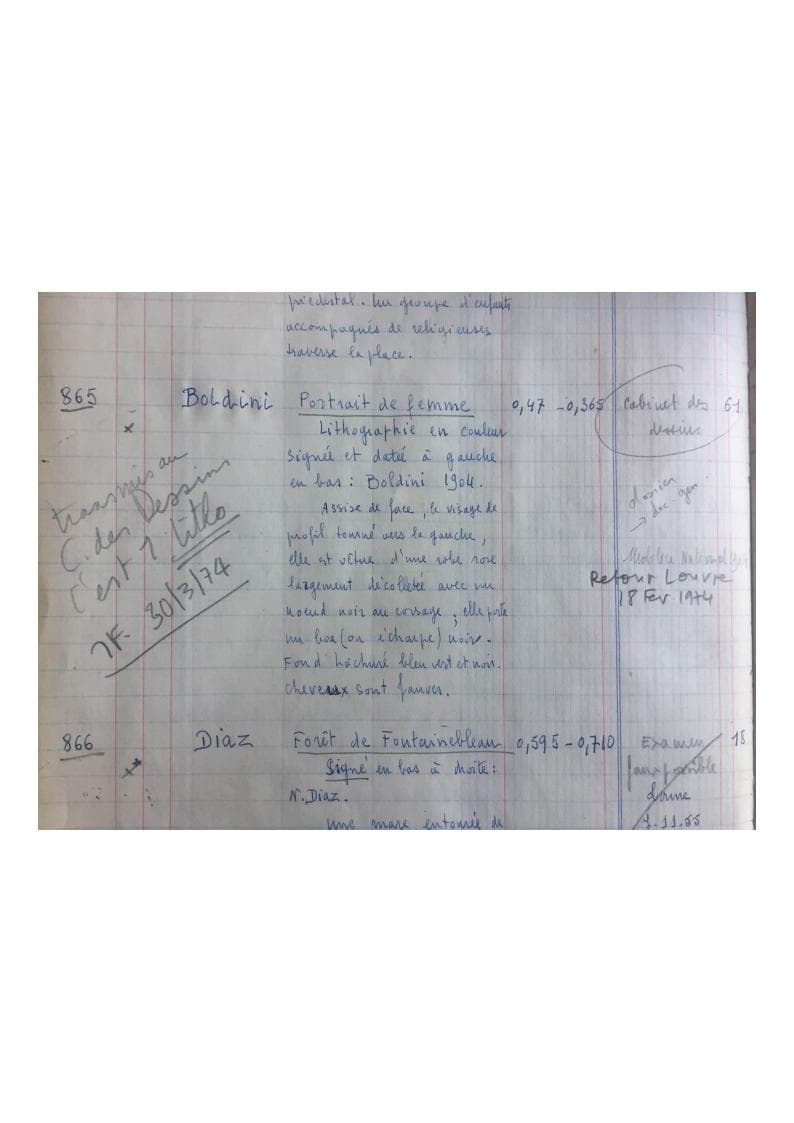 piedestal. Un groupe d'enfants
accompagnés de religieuses
traverse la place.
865 Boldini Portrait de femme 0,47 - 0,365 Cabinet des 61
dessins
Lithographie en couleur
Signée et datée à gauche
en bas : Boldini 1904.
Assise de face, le visage de
profil tourné vers la gauche,
elle est vêtue d'une robe rose
largement décolletée avec un
noeud noir au corsage ; elle porte
un boa (ou écharpe) noir.
Fond hachuré bleu vert et noir.
cheveux sont fauves.
transmis au
C. des Dessins
C'est 1 litho
30/3/74
dossier
→ doc. gen
Mobilier National
Retour Louvre
18 Fev 1974
866 Diaz Forêt de Fontainebleau 0,595 - 0,710 Examen 18
impossible
Signé en bas à droite :
N. Diaz.
7.11.55
une mare entourée de